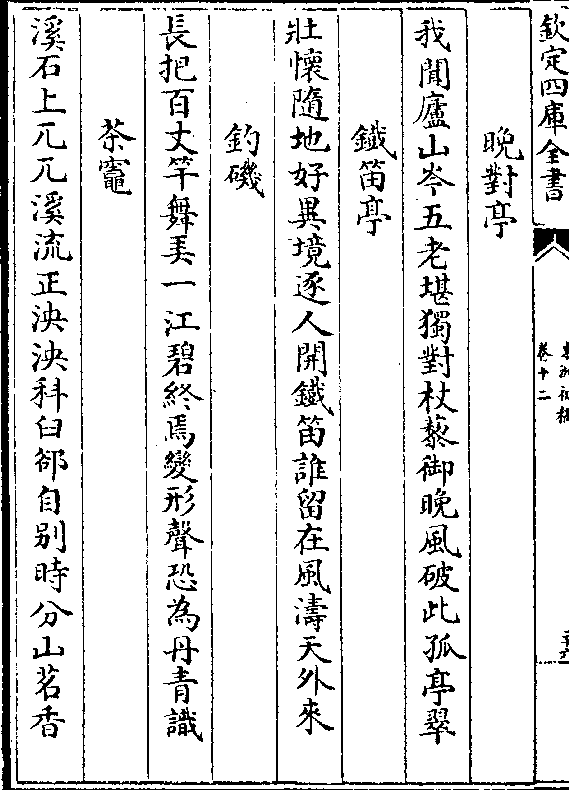 欽定四庫全書
卷十二
晚對亭
我聞廬山岑五老堪獨對杖藜御晚風破此孤亭翠
鐵笛亭
壯懷隨地好異境逐人開鐵笛誰留在風濤天外來
釣磯
長把百丈竿舞弄一江碧終焉變形聲恐為丹青識
茶竈
溪石上兀兀溪流正泱泱科臼郤自别時分山茗香